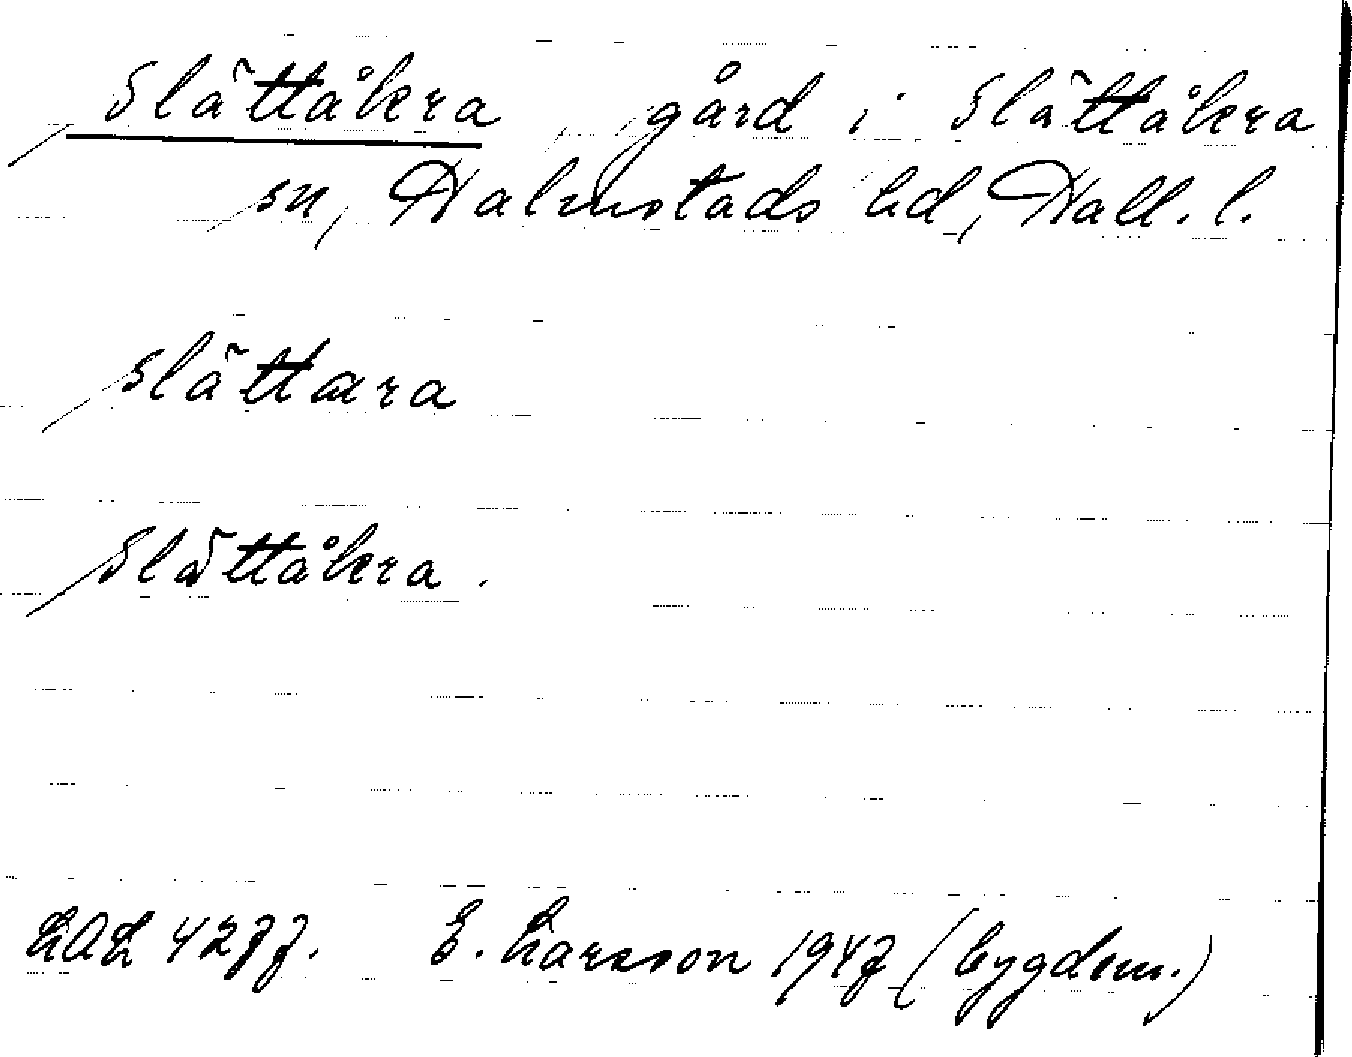 Slättåkra, gård i Slättåkra
sn, Halmstads hd, Hall. l.
slättæra
Slättåkra.
LAL 4277. E. Larsson 1947 (bygdem.)